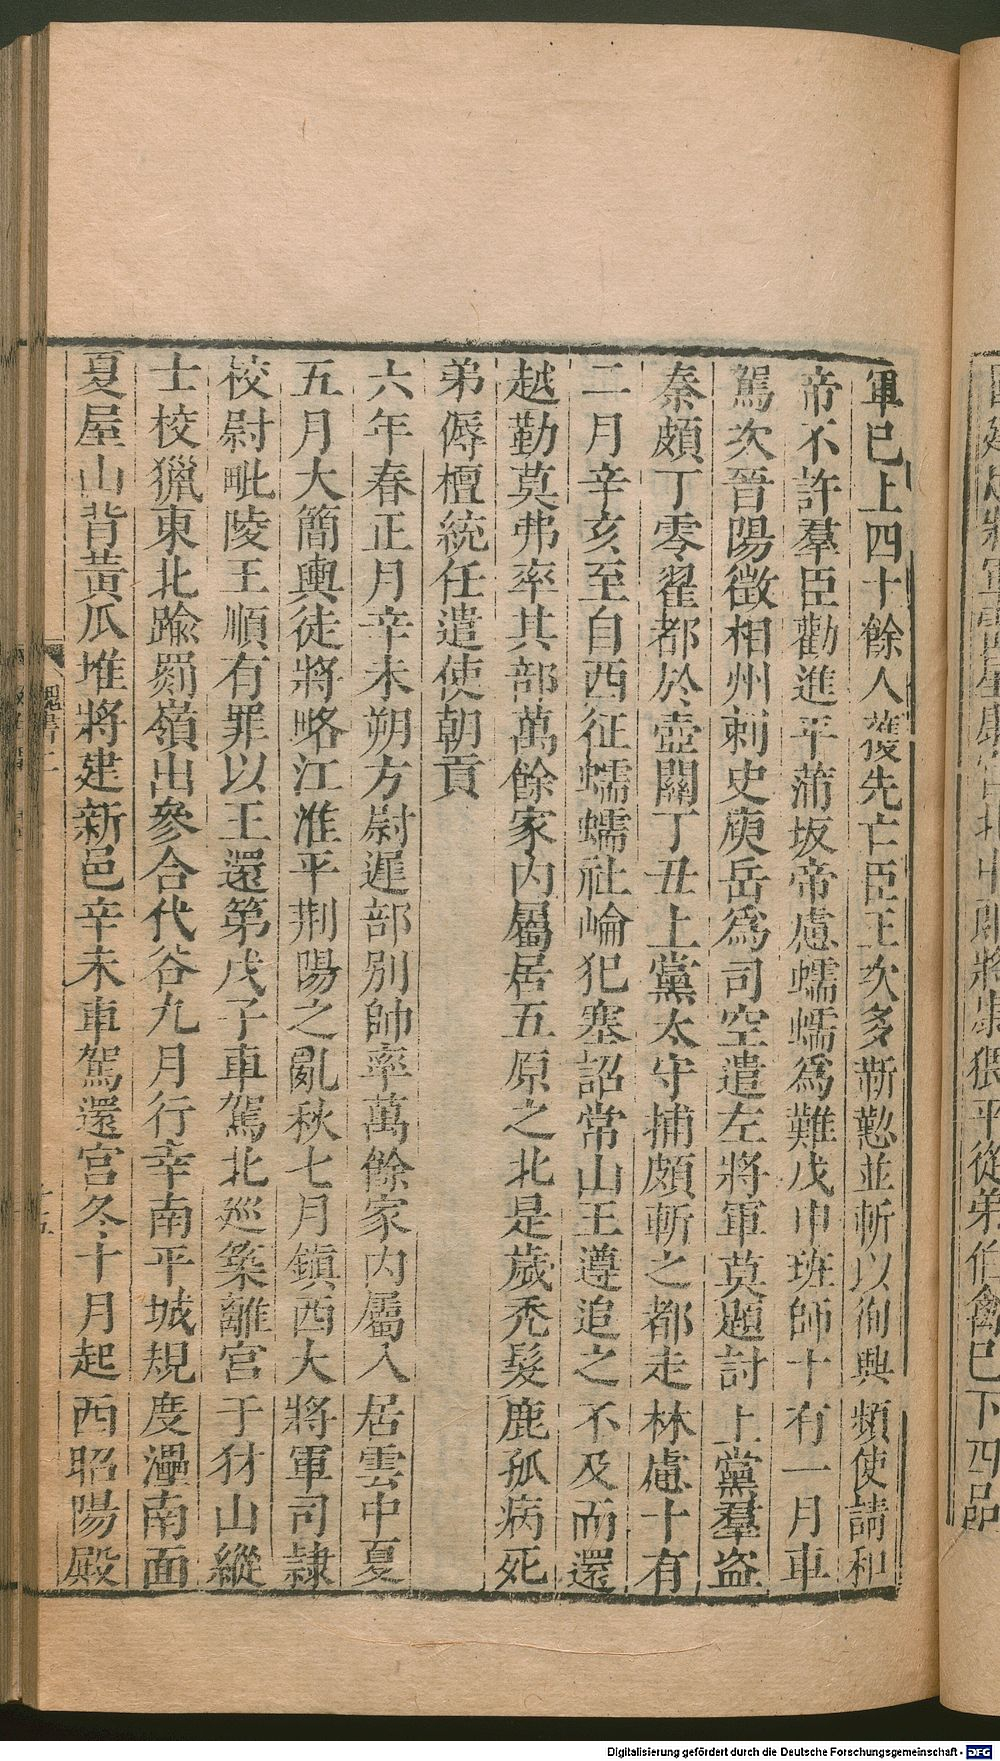 軍已上四十餘人獲先亡臣王次多靳懃並斬以徇興頻使請和
帝不許羣臣勸進平蒲坂帝慮蠕蠕爲難戊申班師十有一月車
駕次晉陽徵相州刺史庾岳爲司空遣左將軍莫題討上黨羣盜
秦頗丁零翟都於壺關丁丑上黨太守捕頗斬之都走林慮十有
二月辛亥至自西征蠕蠕社崘犯塞詔常山王遵追之不及而還
越勤莫弗率其部萬餘家内屬居五原之北是歲禿髮鹿孤病死
弟傉檀統任遣使朝貢
六年春正月辛未朔方尉遲部別帥率萬餘家内屬入居雲中夏
五月大簡輿徒將略江淮平荆陽之亂秋七月鎮西大將軍司隷
校尉毗陵王順有罪以王還第戊子車駕北巡築離宮于犲山縱
士校獵東北踰罽嶺出參合代谷九月行幸南平城規度㶟南面
夏屋山背黃瓜堆將建新邑辛未車駕還宮冬十月起西昭陽殿
魏書二
十五
Digitalisierung gefördert durch die Deutsche Forschungsgemeinschaft - DFG